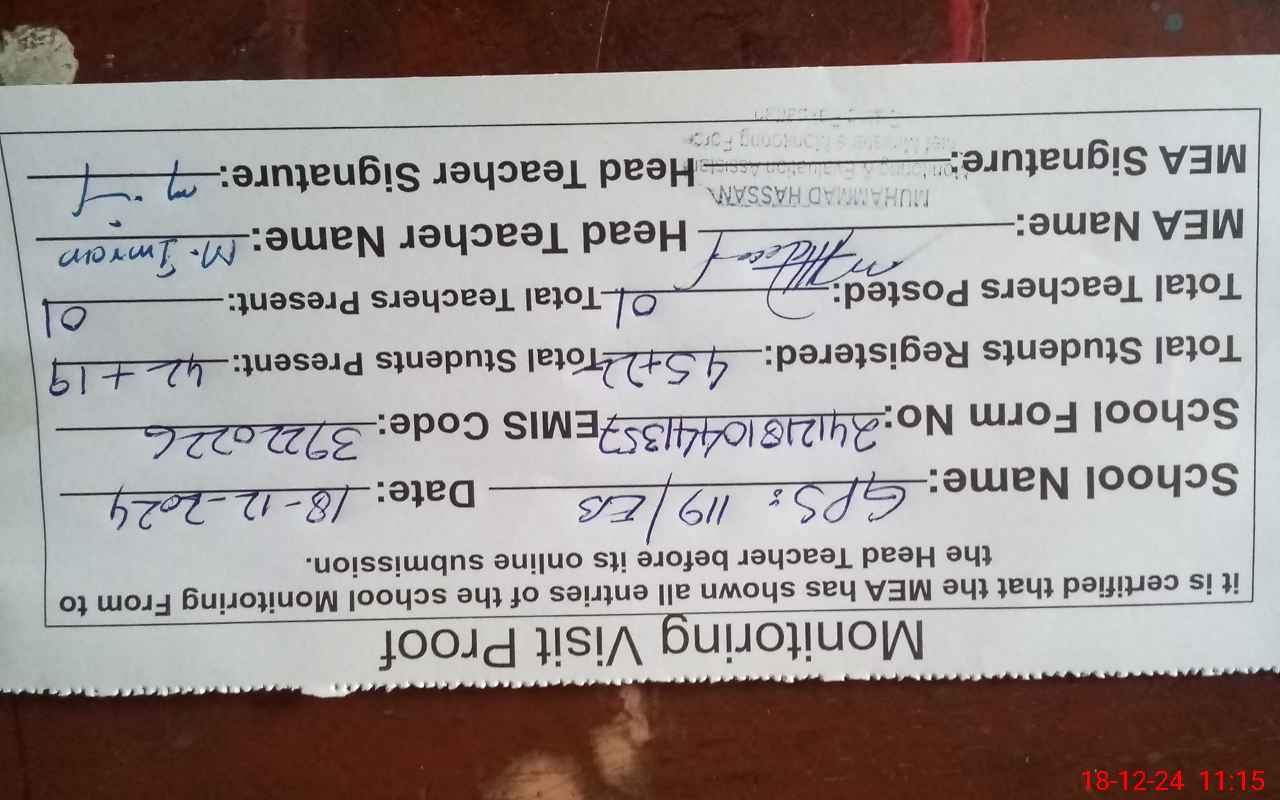 Monitoring Visit Proof
it is certified that the MEA has shown all entries of the school Monitoring From to
the Head Teacher before its online submission.
School Name: GPS: 119/EB Date: 18-12-2024
School Form No: 24121810441357 EMIS Code: 39220226
Total Students Registered: 45+22 Total Students Present: 42+19
Total Teachers Posted: 01 Total Teachers Present: 01
MEA Name: Head Teacher Name: M. Imran
MUHAMMAD HASSAN
MEA Signature: Head Teacher Signature:
Monitoring & Evaluation Assistant
Chief Minister's Monitoring Force
18-12-24 11:15